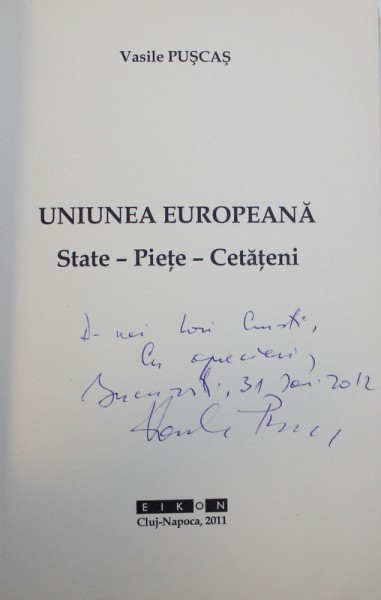 Vasile PUŞCAŞ
UNIUNEA EUROPEANĂ
State – Pieţe – Cetăţeni
D-nei Lori Cristi,
Cu aprecieri,
Bucureşti, 31 Ian. 2012
EIKON
Cluj-Napoca, 2011